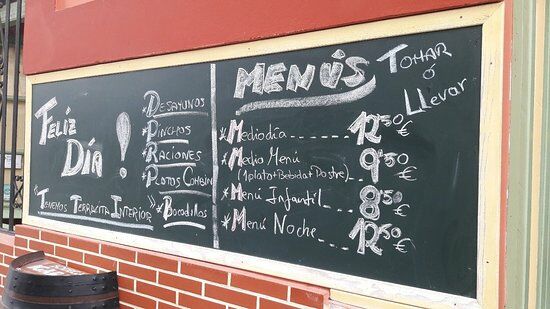 FELIZ
DÍA !
"TENEMOS TERRACITA INTERIOR"
DESAYUNOS
*PINCHOS
*RACIONES
*PLATOS COMBIN
*BOCADILLOS
MENÚS
TOMAR
Ó
LLEVAR
*Mediodía 12,50 €
*Medio Menú 9,50 €
(1plato+Bebida+Postre)
*Menú Infantil 8,50 €
*Menú Noche 12,50 €